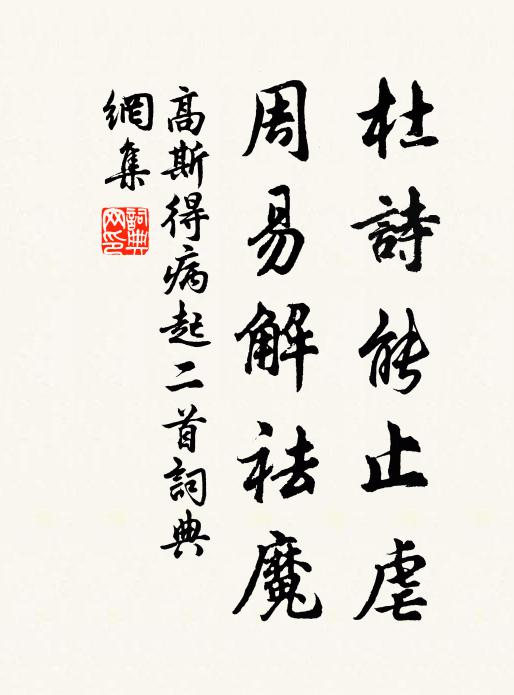 杜詩能止虐
周易解祛魔
高斯得病起二首詞典
網集
詞典
网印